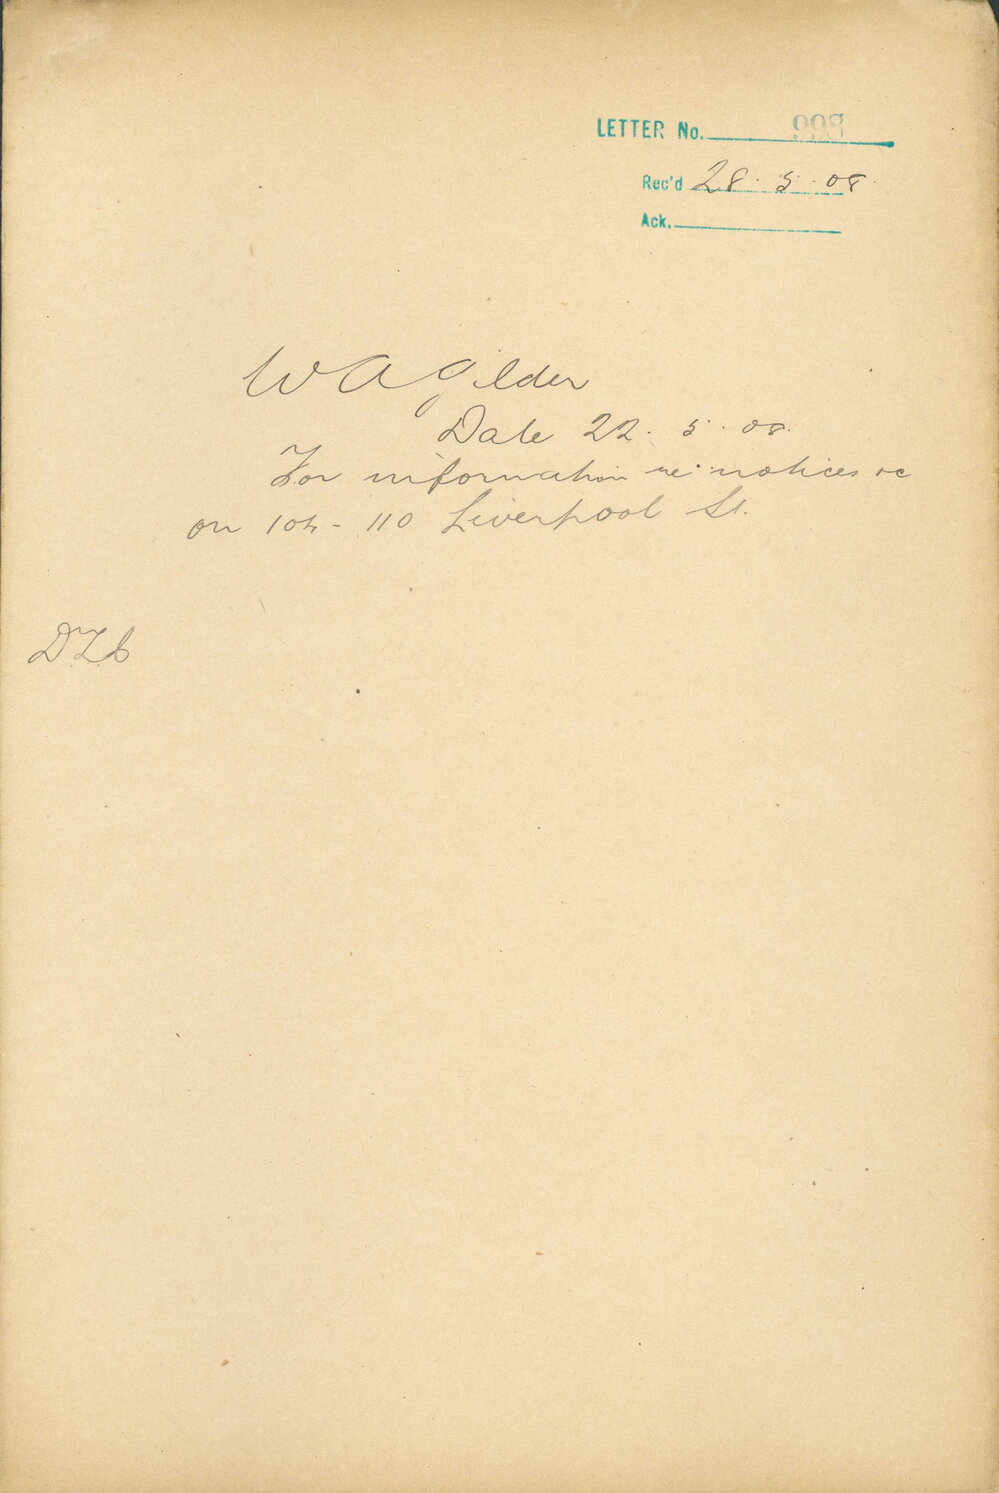 LETTER No. 998
Rec'd 28. 5. 08.
Ack.
W A Gilder
Date 22. 5. 08.
For information re notices &c
on 104 - 110 Liverpool St.